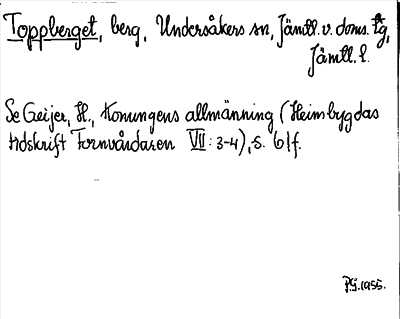 Toppberget, berg, Undersåkers sn, Jämtl. v. doms. tg,
Jämtl. l.
Se Geijer, H., Konungens allmänning (Heimbygdas
tidskrift Fornvårdaren VII: 3-4), s. 61f.
P.G. 1955.